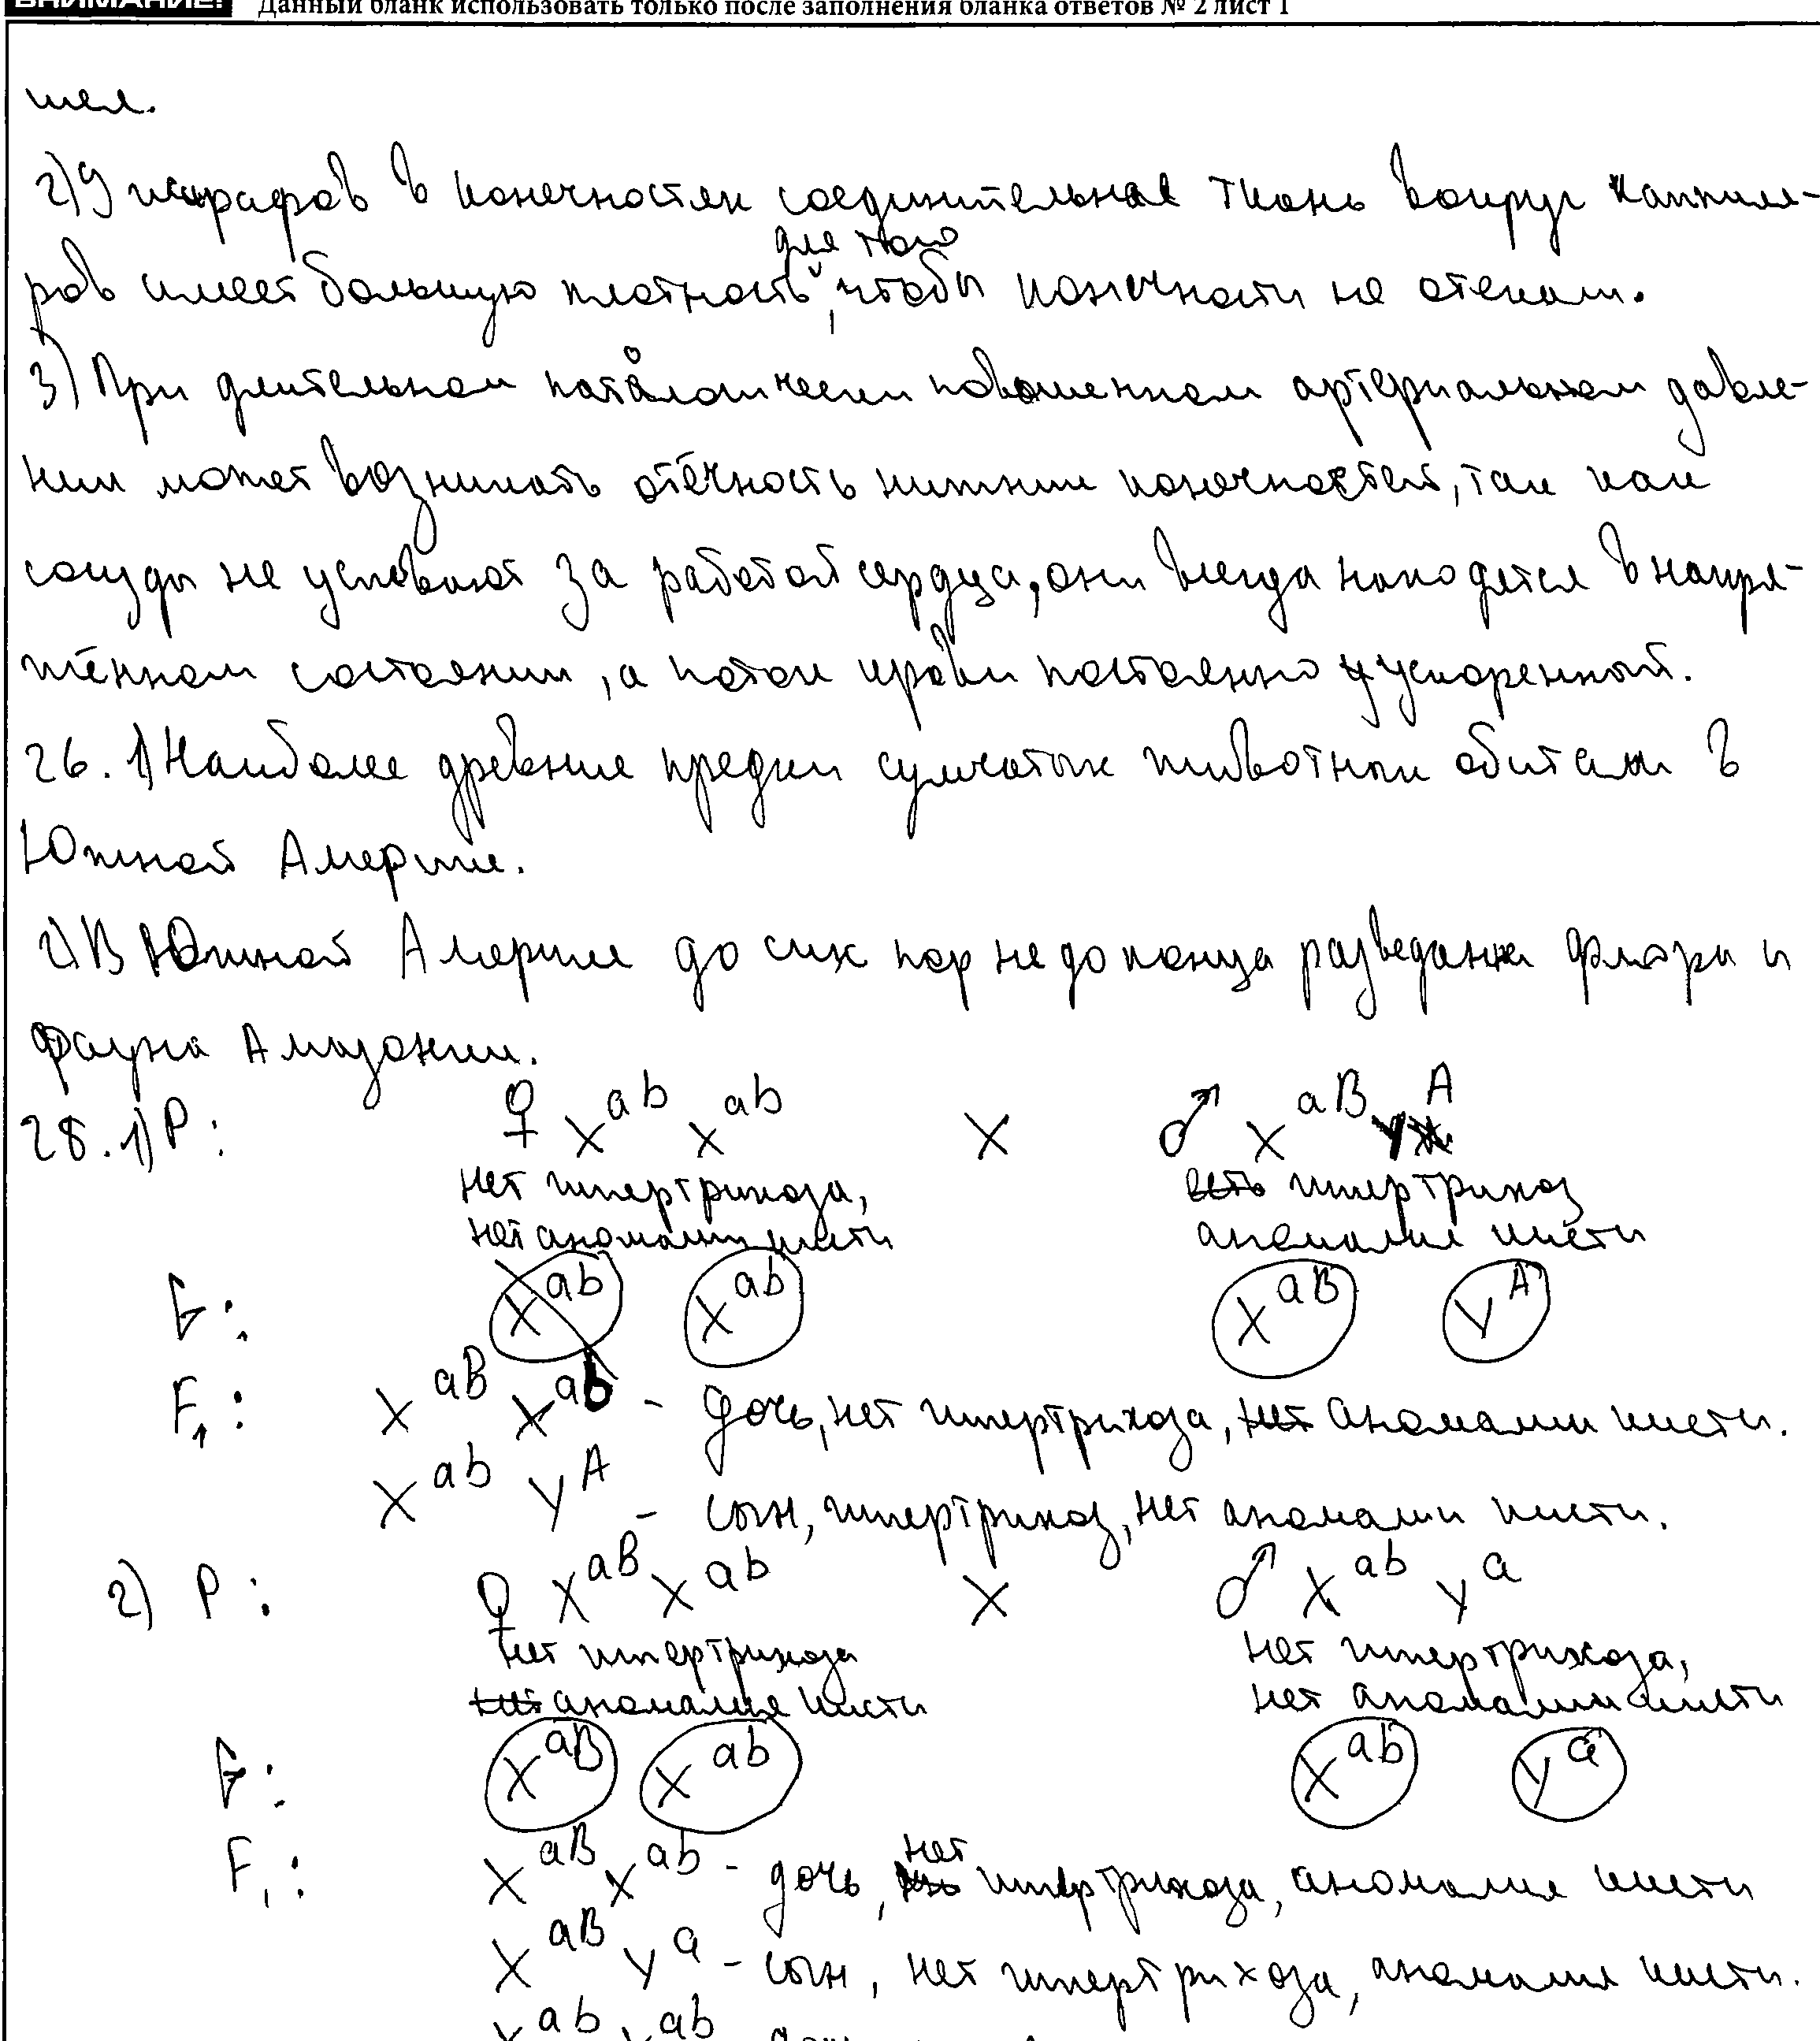 ВНИМАНИЕ! Данный бланк использовать только после заполнения бланка ответов № 2 лист 1
шел.
2) У жирафов в конечностях соединительная ткань вокруг капиля-
для того
ров имеет большую плотность, чтобы конечности не отекали.
3) При длительном патологически повышенном артериальном давле-
нии может возникать отёчность нижних конечностей, так как
сосуды не успевают за работой сердца, они всегда находятся в напря-
жённом состоянии, а поток крови постоянно ускоренный.
26. 1) Наиболее древние предки сумчатых животных обитали в
Южной Америке.
2) В Южной Америке до сих пор не до конца разведана флора и
фауна Амазонии.
28. 1) P: ♀ X^ab X^ab X ♂ X^aB Y^A
нет гипертрихоза, гипертрихоз
нет аномалии кисти аномалия кисти
G: X^ab X^ab X^aB Y^A
F₁: X^aB X^ab - дочь, нет гипертрихоза, аномалии кисти.
X^ab Y^A - сын, гипертрихоз, нет аномалии кисти.
2) P: ♀ X^aB X^ab X ♂ X^ab Y^a
нет гипертрихоза нет гипертрихоза,
аномалия кисти нет аномалии кисти
G: X^aB X^ab X^ab Y^a
F₁: X^aB X^ab - дочь, нет гипертрихоза, аномалия кисти
X^aB Y^a - сын, нет гипертрихоза, аномалия кисти.
X^ab X^ab